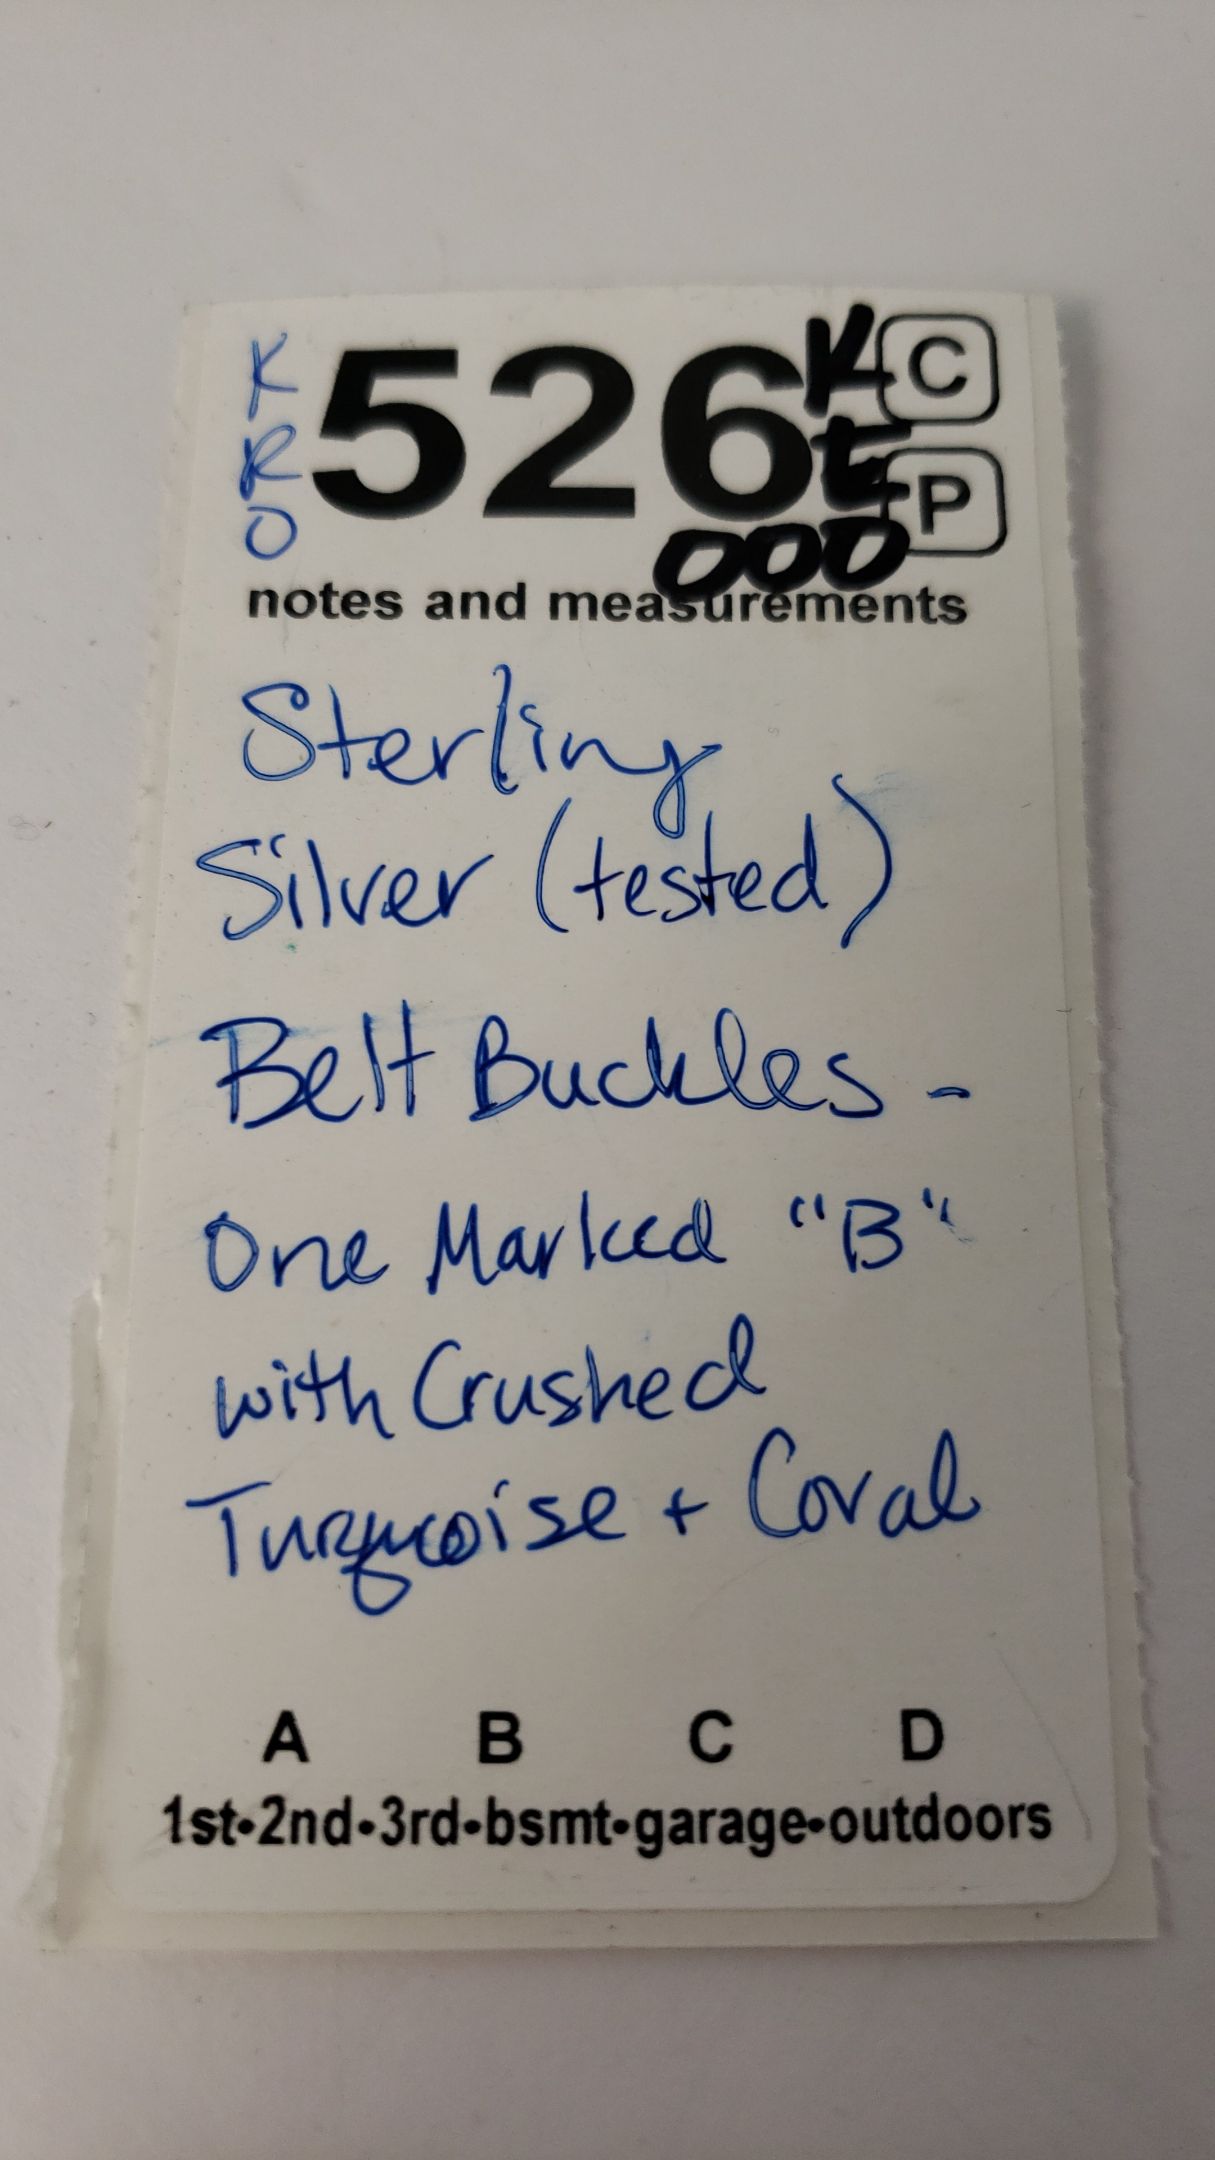 K
R
O
526
K
t
000
C
P
notes and measurements
Sterling
Silver (tested)
Belt Buckles -
One Marked "B"
with Crushed
Turquoise + Coral
A B C D
1st•2nd•3rd•bsmt•garage•outdoors